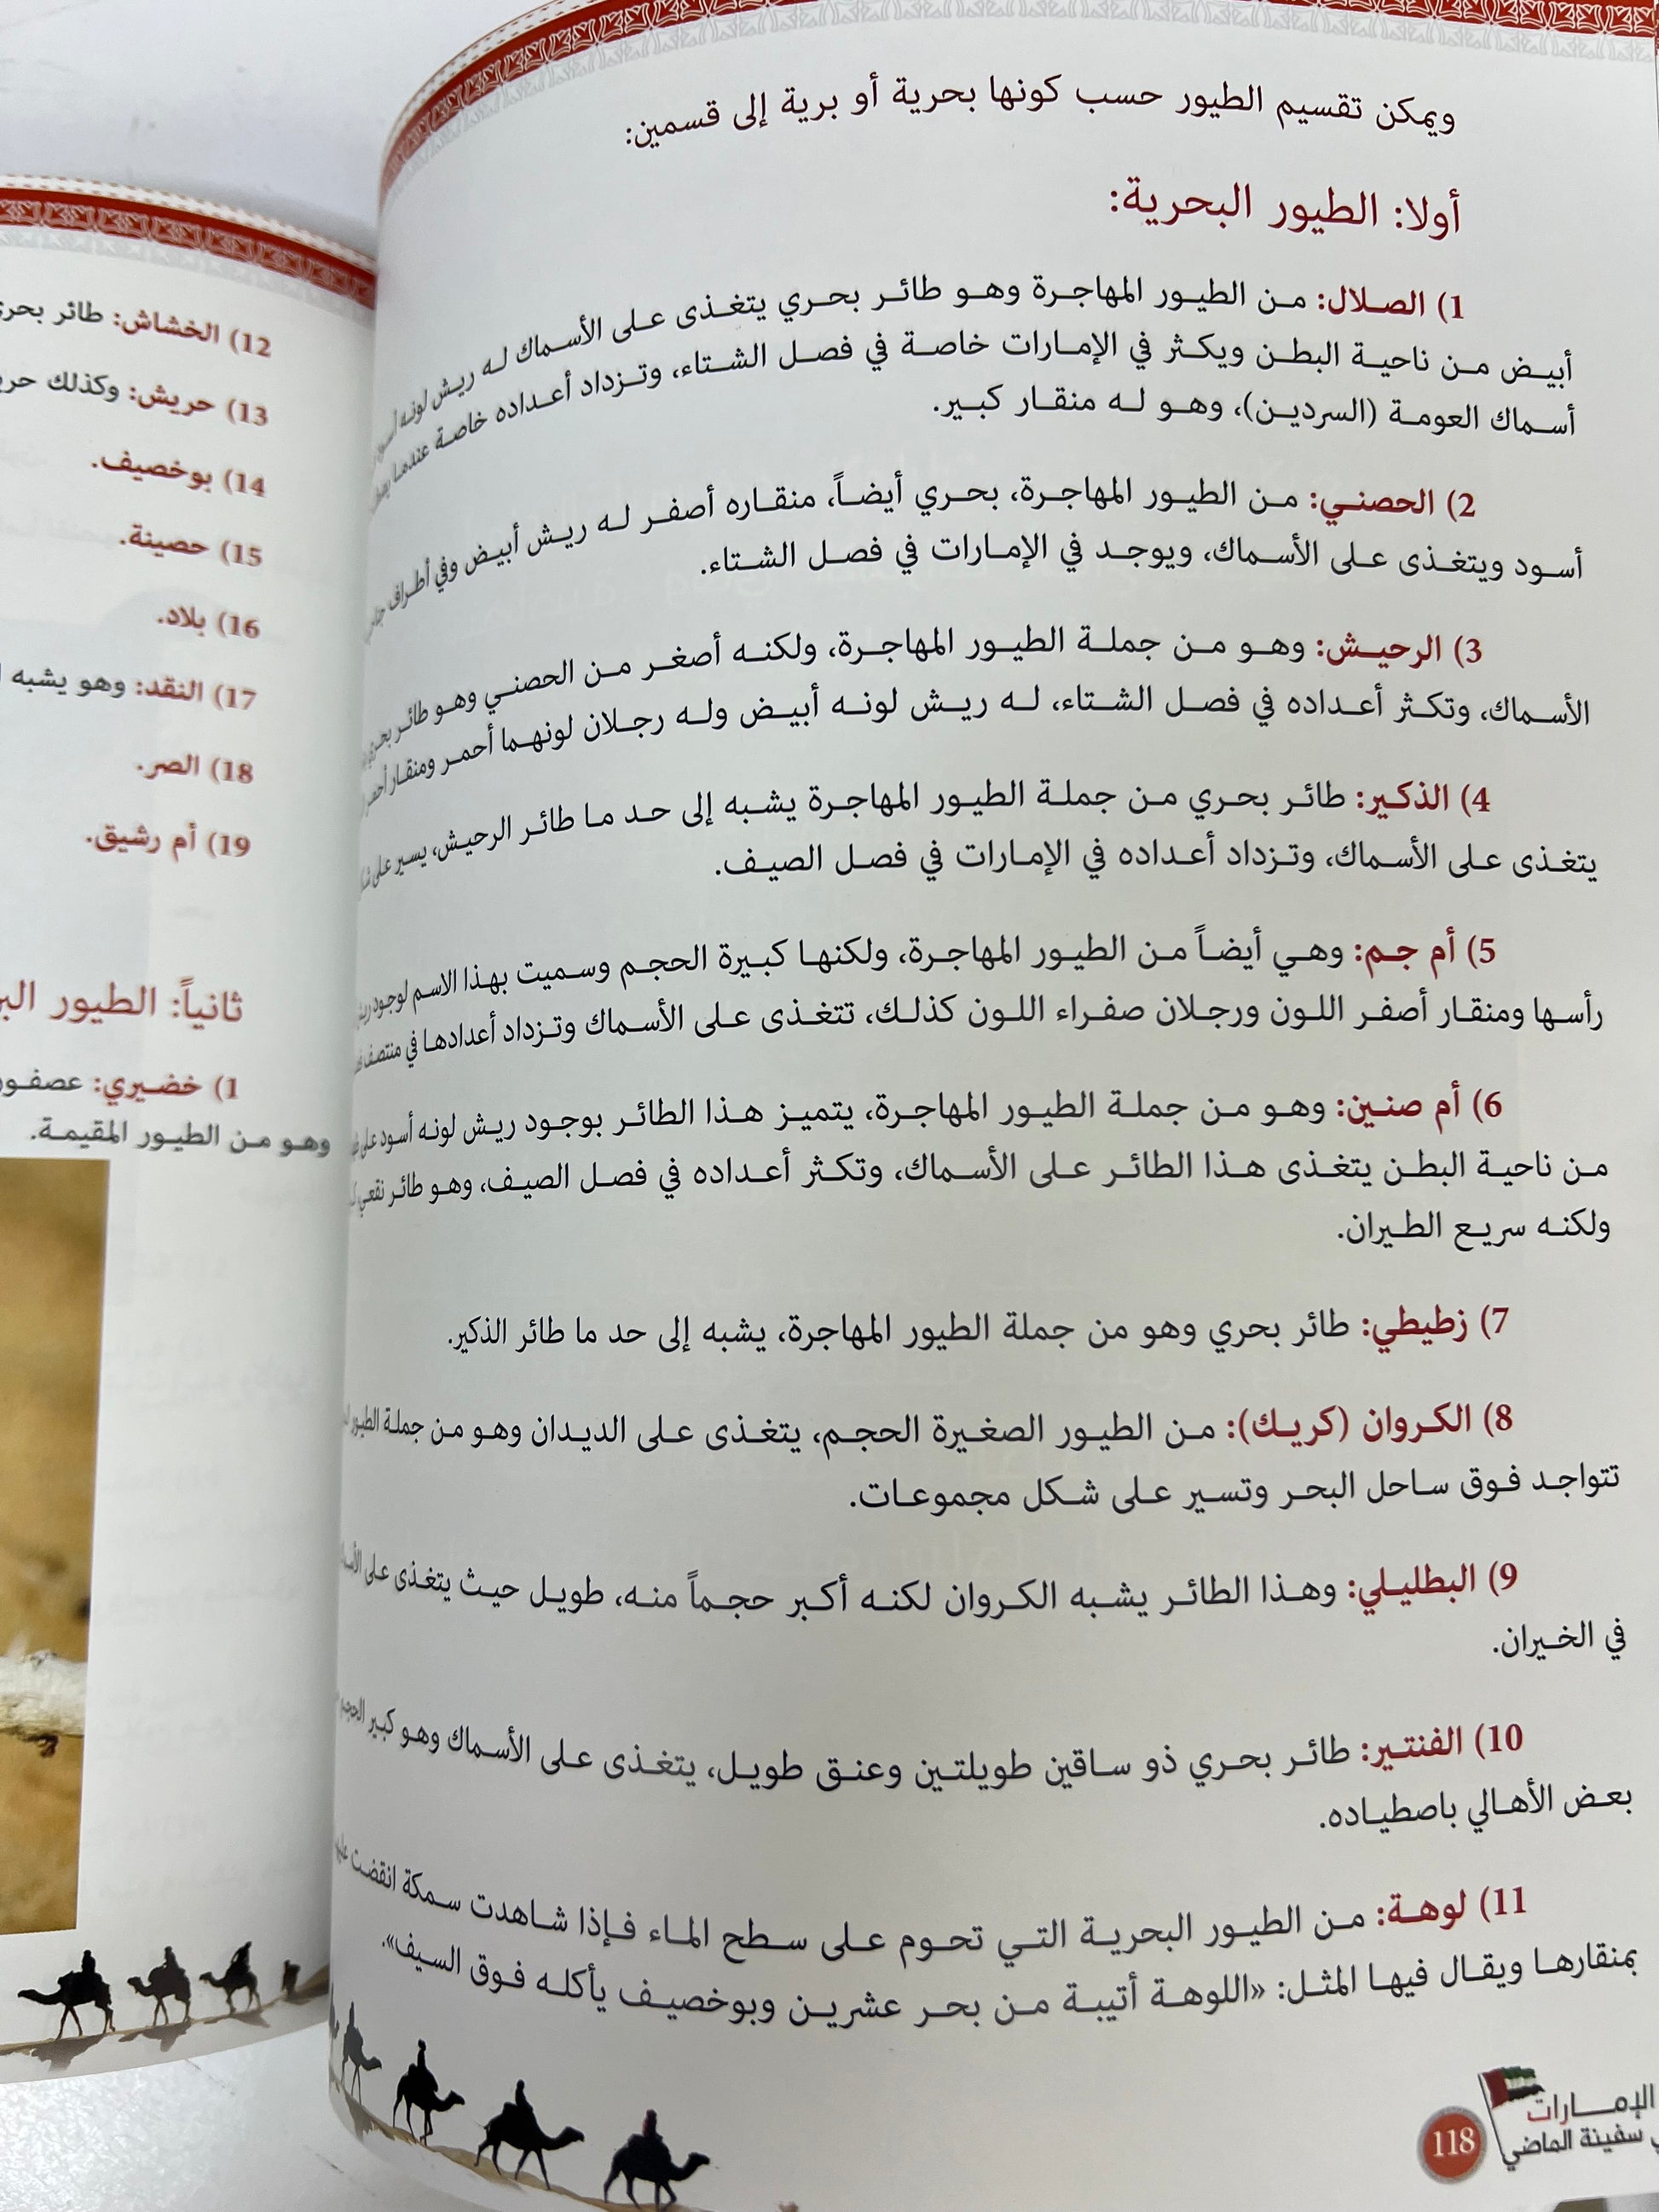 ويمكن تقسيم الطيور حسب كونها بحرية أو برية إلى قسمين:
أولا: الطيور البحرية:
1) الصلال: من الطيور المهاجرة وهو طائر بحري يتغذى على الأسماك له ريش لونه أسود
أبيض من ناحية البطن ويكثر في الإمارات خاصة في فصل الشتاء، وتزداد أعداده خاصة عندما
أسماك العومة (السردين)، وهو له منقار كبير.
2) الحصني: من الطيور المهاجرة، بحري أيضاً، منقاره أصفر له ريش أبيض وفي أطراف
أسود ويتغذى على الأسماك، ويوجد في الإمارات في فصل الشتاء.
3) الرحيش: وهو من جملة الطيور المهاجرة، ولكنه أصغر من الحصني وهو طائر بحري
الأسماك، وتكثر أعداده في فصل الشتاء، له ريش لونه أبيض وله رجلان لونهما أحمر ومنقار أحمر
4) الذكير: طائر بحري من جملة الطيور المهاجرة يشبه إلى حد ما طائر الرحيش، يسير على
يتغذى على الأسماك، وتزداد أعداده في الإمارات في فصل الصيف.
5) أم جم: وهي أيضاً من الطيور المهاجرة، ولكنها كبيرة الحجم وسميت بهذا الاسم لوجود
رأسها ومنقار أصفر اللون ورجلان صفراء اللون كذلك، تتغذى على الأسماك وتزداد أعدادها في منتصف
6) أم صنين: وهو من جملة الطيور المهاجرة، يتميز هذا الطائر بوجود ريش لونه أسود على
من ناحية البطن يتغذى هذا الطائر على الأسماك، وتكثر أعداده في فصل الصيف، وهو طائر نقعي
ولكنه سريع الطيران.
7) زطيطي: طائر بحري وهو من جملة الطيور المهاجرة، يشبه إلى حد ما طائر الذكير.
8) الكروان (كريك): من الطيور الصغيرة الحجم، يتغذى على الديدان وهو من جملة الطيور
تتواجد فوق ساحل البحر وتسير على شكل مجموعات.
9) البطليلي: وهذا الطائر يشبه الكروان لكنه أكبر حجماً منه، طويل حيث يتغذى على
في الخيران.
10) الفنتير: طائر بحري ذو ساقين طويلتين وعنق طويل، يتغذى على الأسماك وهو كبير الحجم
بعض الأهالي باصطياده.
11) لوهة: من الطيور البحرية التي تحوم على سطح الماء فإذا شاهدت سمكة انقضت
بمنقارها ويقال فيها المثل: «اللوهة أتيبة من بحر عشرين وبوخصيف يأكله فوق السيف».
الإمارات
سفينة الماضي
118
12) الخشاش: طائر بحري
13) حريش: وكذلك
14) بوخصيف.
15) حصينة.
16) بلاد.
17) النقد: وهو يشبه
18) الصر.
19) أم رشيق.
ثانياً: الطيور
1) خضيري: عصفور
وهو من الطيور المقيمة.